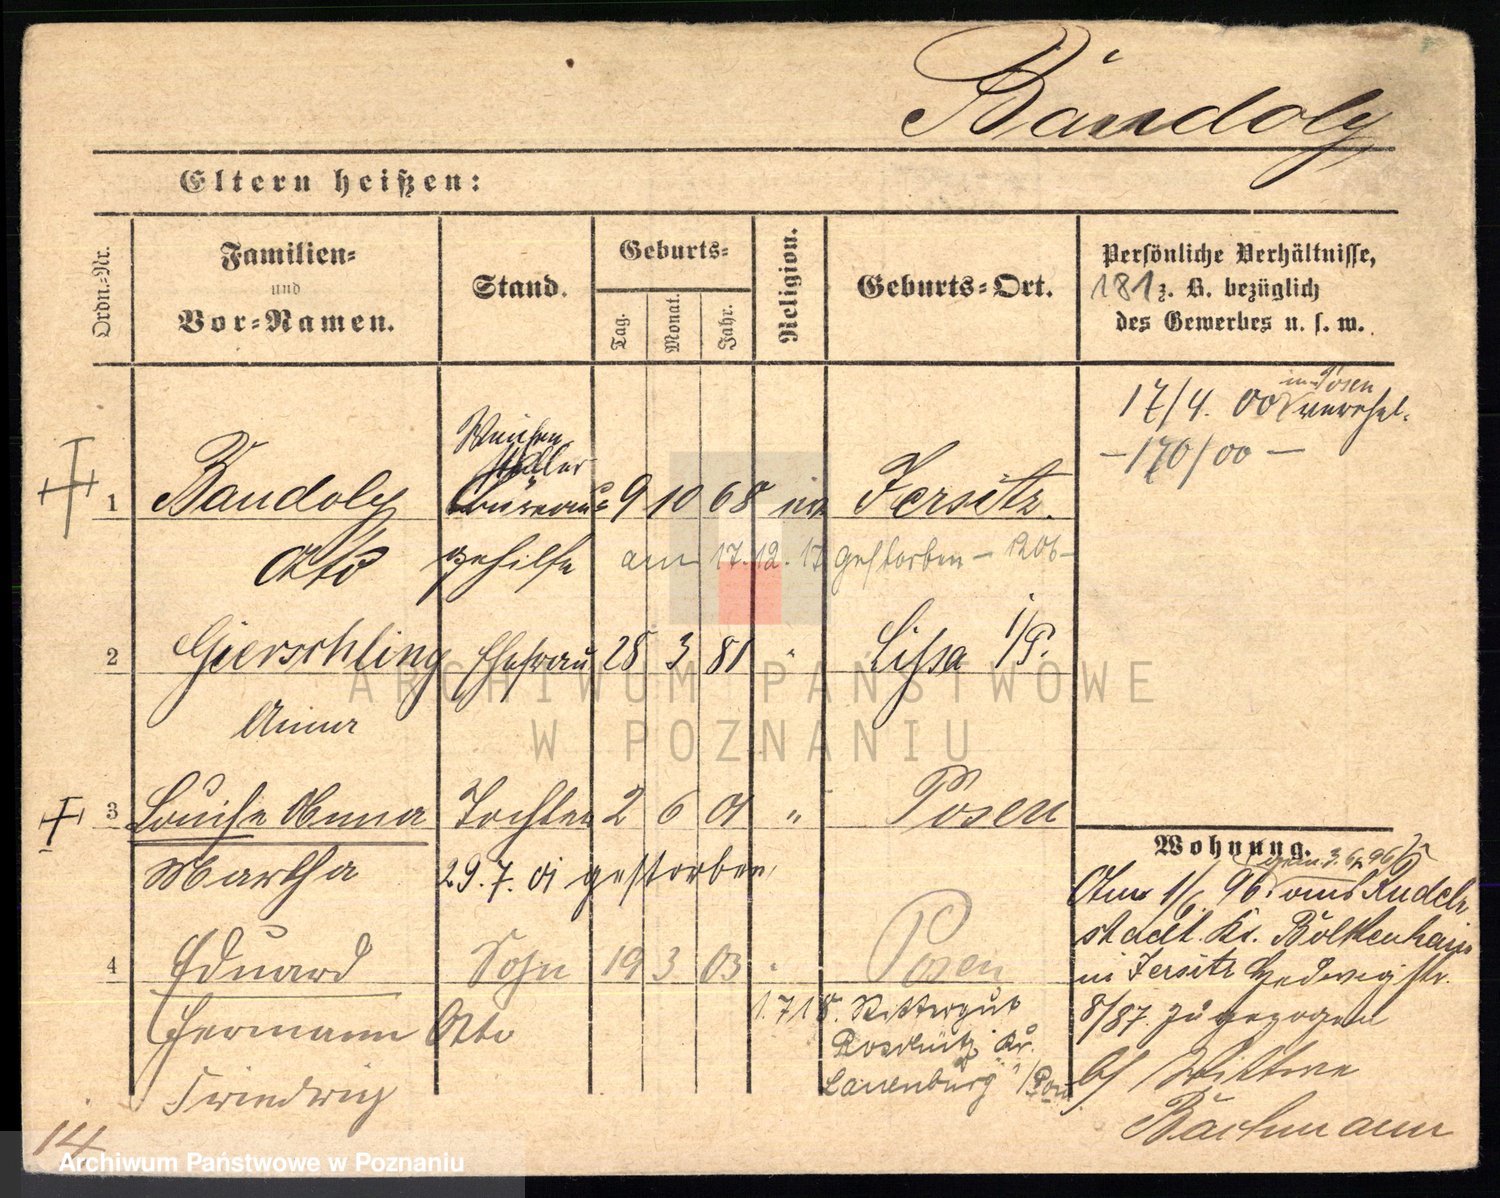 Bandoly
Eltern heißen:
Ordn.-Nr.
Familien-
und
Vor-Namen.
Stand.
Geburts-
Tag.
Monat.
Jahr.
Religion.
Geburts-Ort.
Persönliche Verhältnisse,
181 z. B. bezüglich
des Gewerbes u. s. w.
in Posen
17/4. 00 verehel.
- 170/00 -
Weichen
steller
1 Bandoly Bureau- 9 10 68 Jersitz.
Otto gehilfe am 17.12.17 gestorben - 1206 -
2 Gierschling Ehefrau 28 3 81 " Lissa i/P.
Anna
3 Louise Anna Tochter 2 6 01 " Posen
Martha 29.7.01 gestorben
4 Eduard Sohn 19 3 03 " Posen
Hermann Otto
Friedrich
1.7.18. Rittergut
Kr.
Lauenburg i/Pom
Wohnung.
gem. 3.6. 96
Am 1/6. 96. aus Rudel-
stadt Kr. Bolkenhain
in Jersitz Hedwigstr.
8/87. zugezogen
b/ Wittwe
Bachmann
14
ARCHIWUM PAŃSTWOWE
W POZNANIU
Archiwum Państwowe w Poznaniu